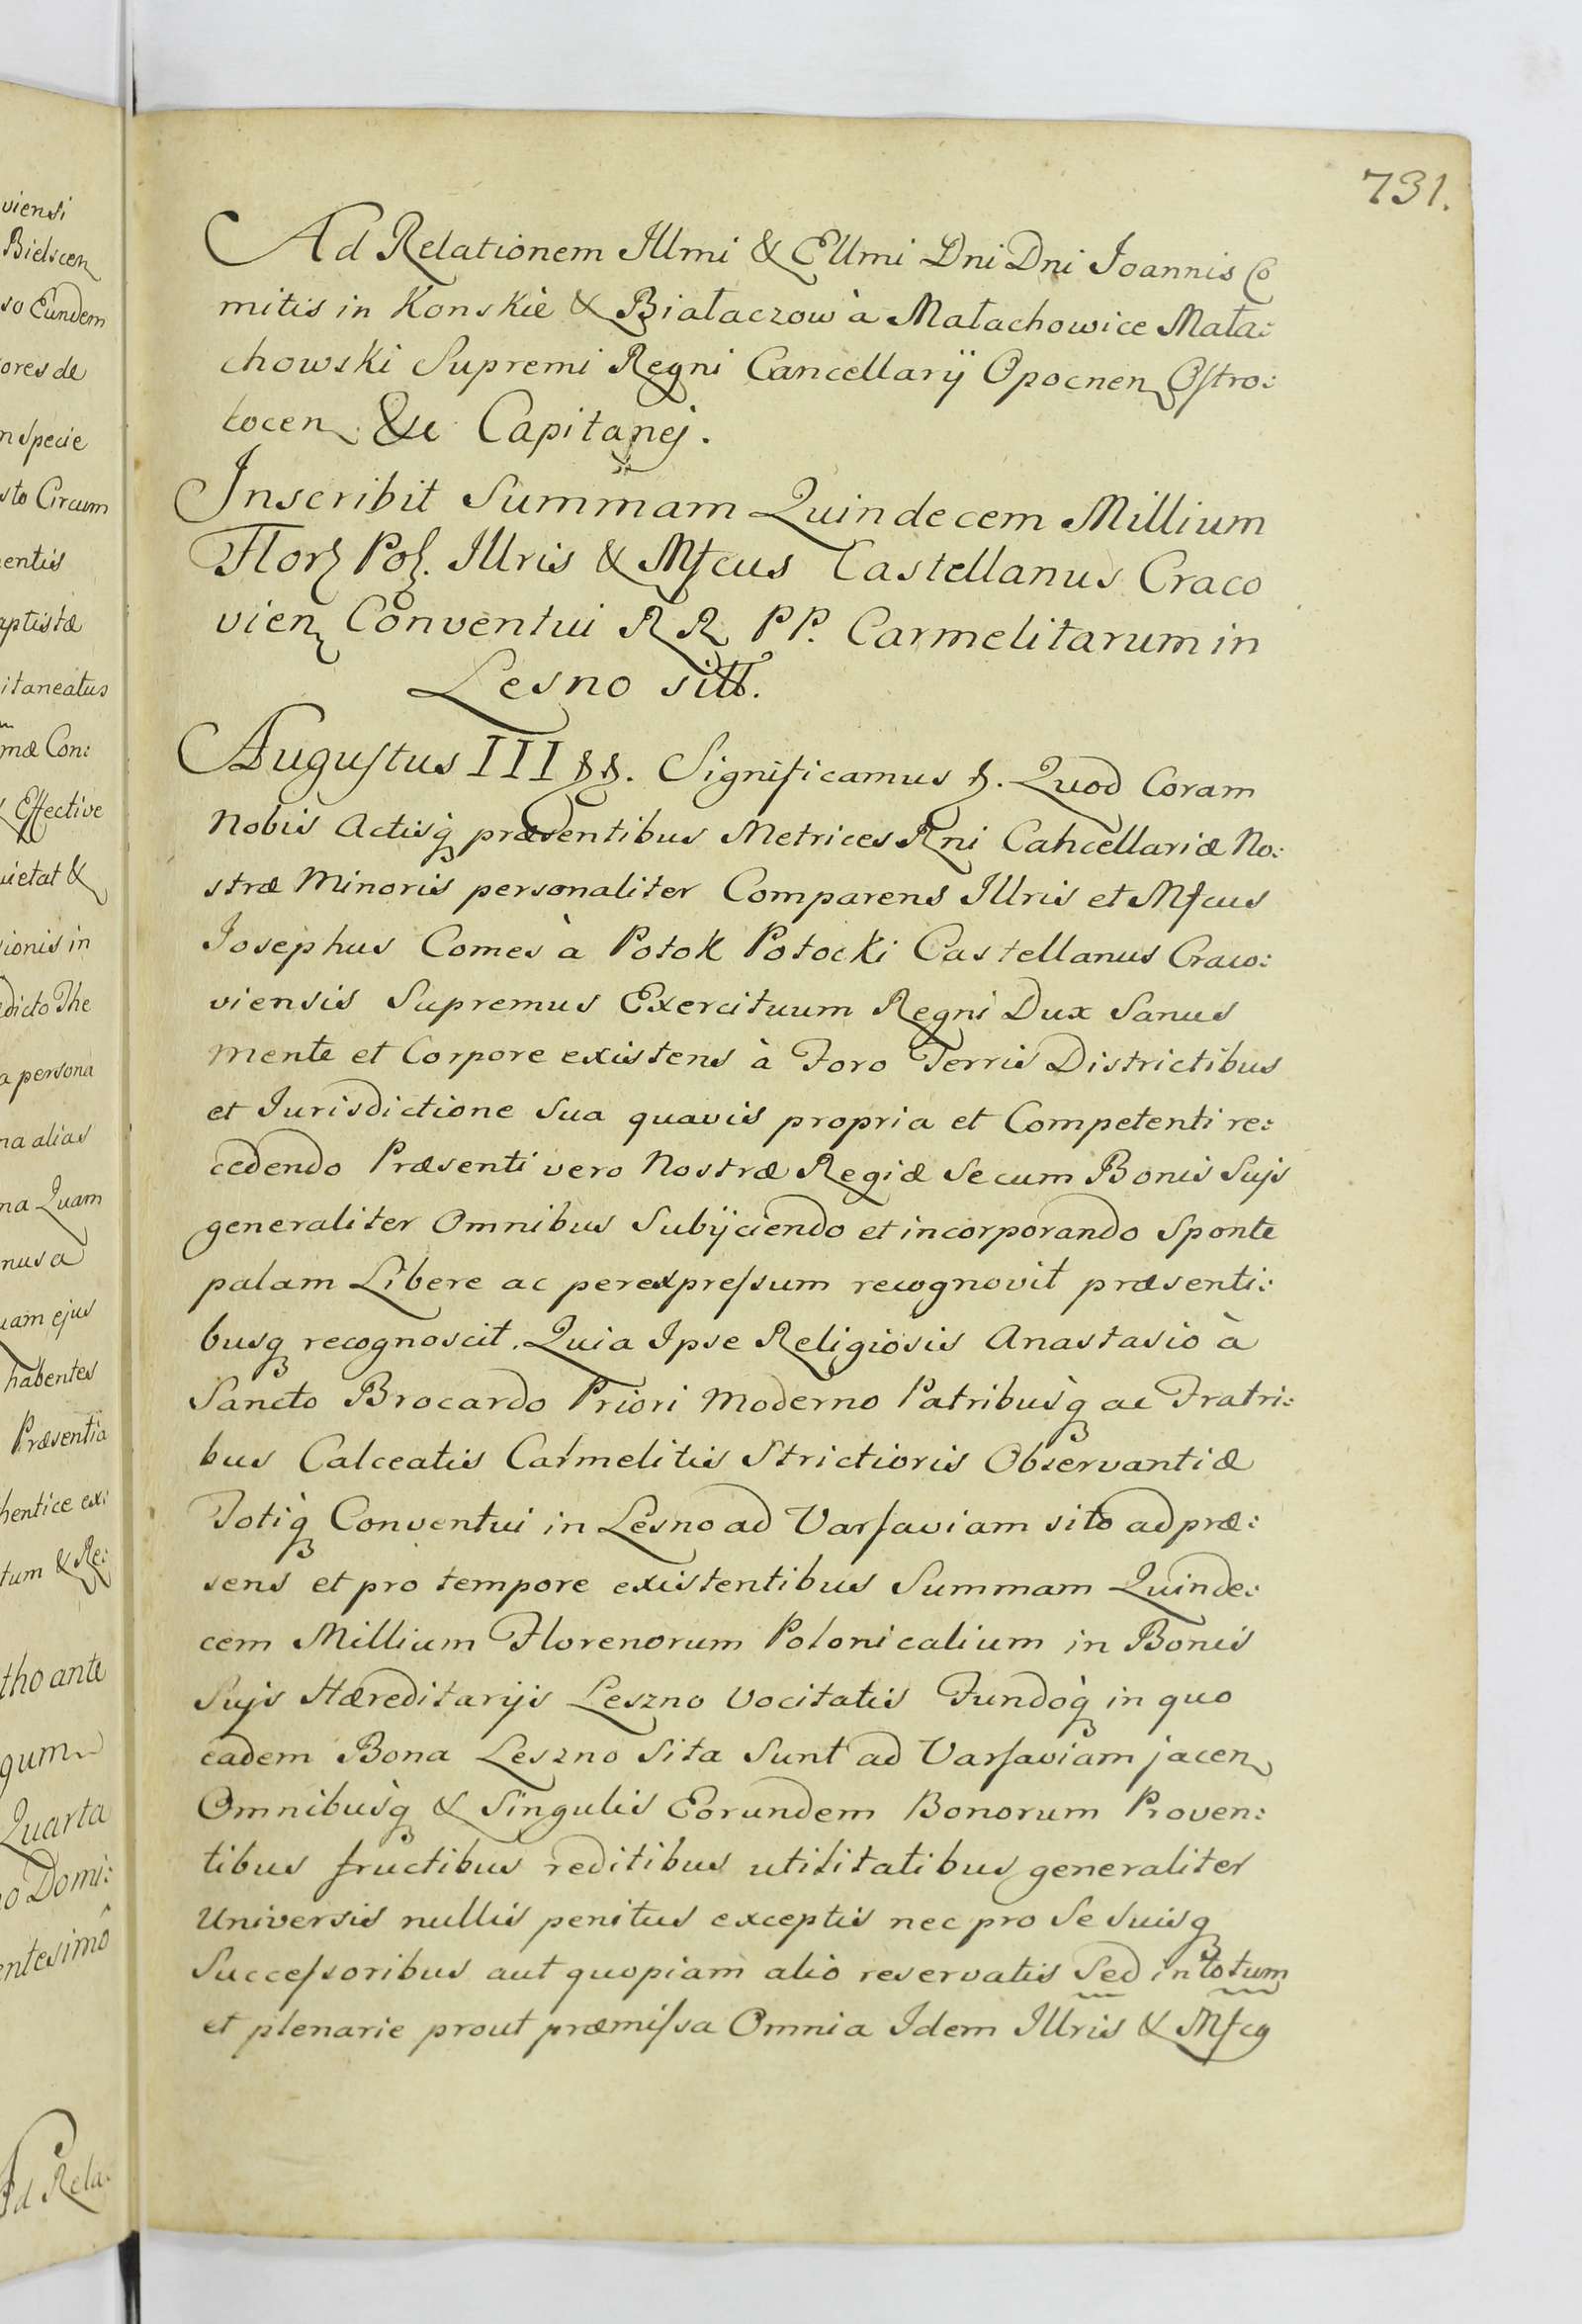 731.
Ad Relationem Illmi & Ellmi Dni Dni Joannis Co
mitis in Konskie & Białaczow à Małachowice Mała:
chowski Supremi Regni Cancellarij Opocnen Ostro:
locen &c Capitanej.
Inscribit Summam Quindecem Millium
Flor Pol. Illris & Mfcus Castellanus Craco
vien Conventui RR PP. Carmelitarum in
Lesno sitt.
Augustus III &&. Significamus &. Quod Coram
Nobis Actisq præsentibus Metrices Rni Cancellariæ No:
stræ Minoris personaliter Comparens Illris et Mfcus
Josephus Comes à Potok Potocki Castellanus Craco:
viensis Supremus Exercituum Regni Dux Sanus
mente et Corpore existens à Foro Terris Districtibus
et Jurisdictione Sua quavis propria et Competenti re:
cedendo Præsenti vero Nostræ Regiæ Secum Bonis Sujs
generaliter Omnibus Subijciendo et incorporando Sponte
palam Libere ac perexpressum recognovit præsenti:
busq recognoscit. Quia Ipse Religiosis Anastasio à
Sancto Brocardo Priori Moderno Patribusq ac Fratri:
bus Calceatis Carmelitis Strictioris Observantiæ
Totiq Conventui in Lesno ad Varsaviam sito ad præ:
sens et pro tempore existentibus Summam Quinde:
cem Millium Florenorum Polonicalium in Bonis
Sujs Hæreditarijs Leszno Vocitatis Fundoq in quo
eadem Bona Leszno Sita Sunt ad Varsaviam jacen
Omnibusq & Singulis Eorundem Bonorum Proven:
tibus fructibus reditibus utilitatibus generaliter
Universis nullis penitus exceptis nec pro Se Suisq
Successoribus aut quopiam alio reservatis Sed in totum
et plenarie prout præmissa Omnia Idem Illris & Mfcq
viensi
Bielscen
so Eundem
ores de
n Specie
sto Circum
entis
aptistæ
itaneatus
mæ Con:
Effective
uietat &
ionis in
dicto The
a persona
na alias
na Quam
nus a
uam ejus
habentes
Præsentia
hentice exi
tum & Re:
tho ante
gum
Quarta
o Domi:
entesimô
Ad Rela: